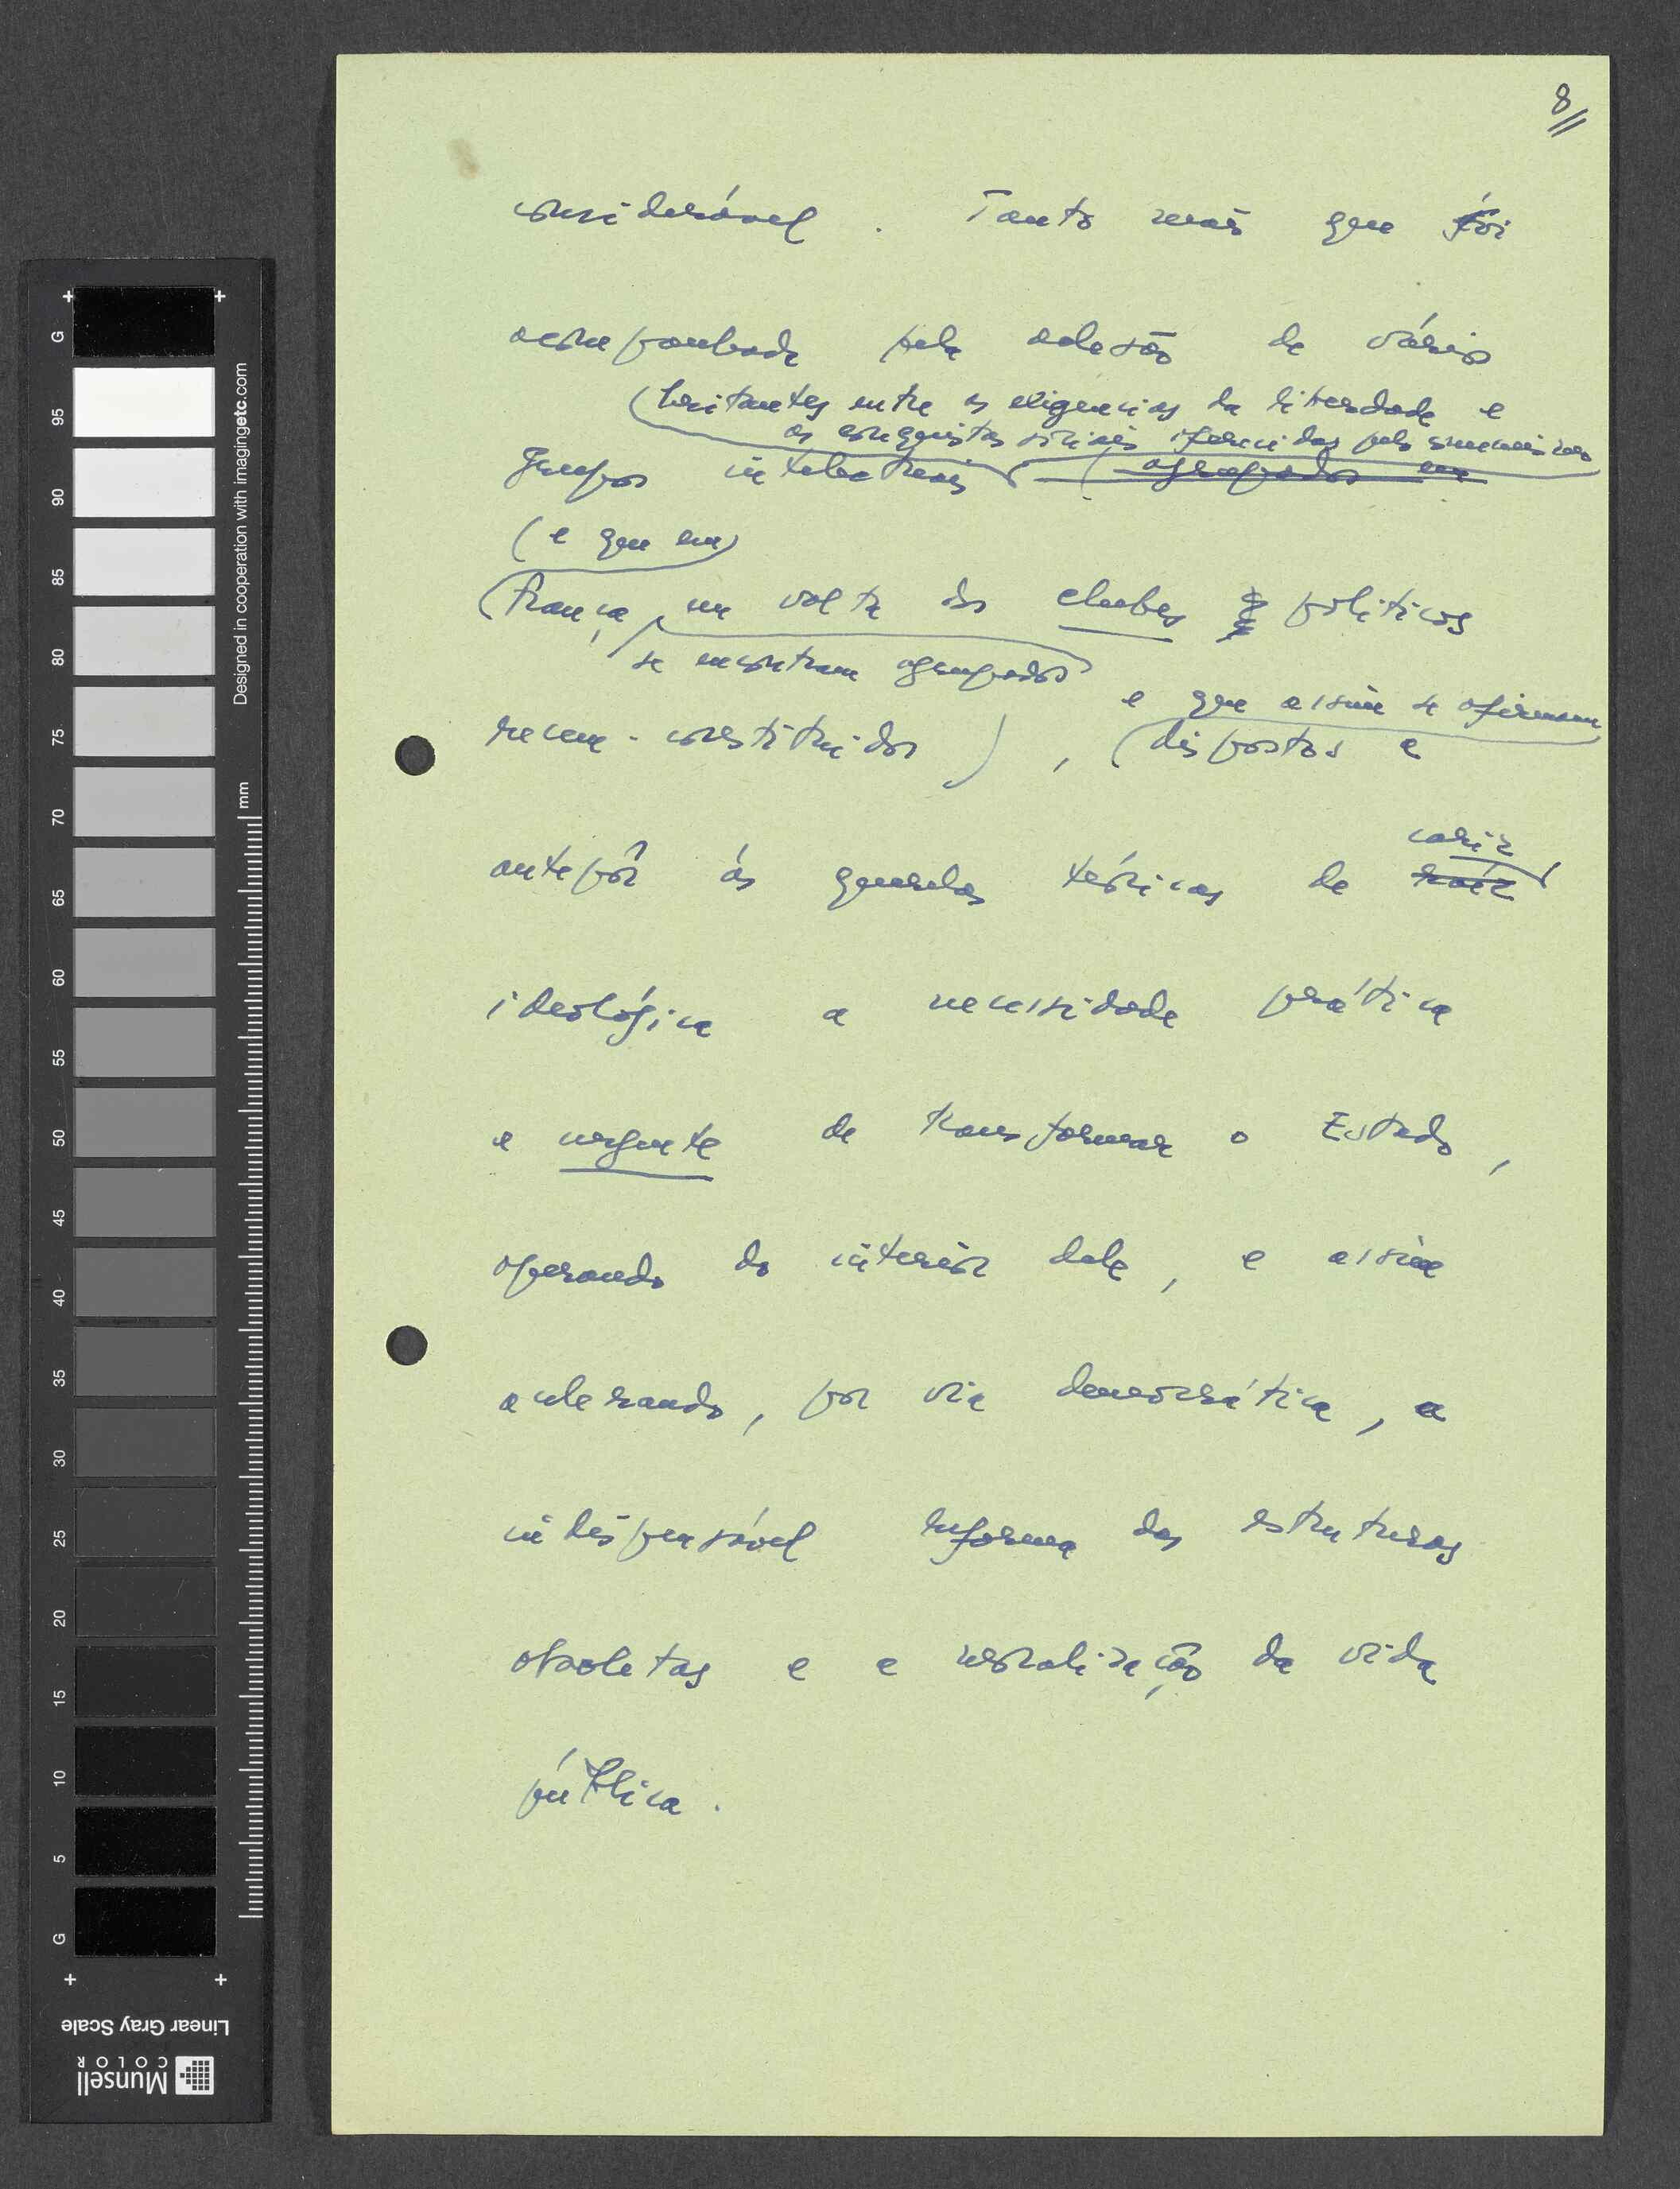 8
considerável. Tanto mais que foi
acompanhada pela adesão de vários
(hesitantes entre as exigencias da liberdade e
as conquistas sociais oferecidas pelo comunismo
grupos intelectuais (agrupados em
(e que em)
(França, em volta dos clubes politicos
se encontram agrupados
recem-constituidos), (dispostos a
e que assim se afirmam
antepôr ás querelas teóricas de raíz
cariz
ideológica a necessidade prática
e urgente de transformar o Estado,
operando do interior dele, e assim
acelerando, por via democrática, a
indispensável reforma das estruturas
obsoletas e a moralização da vida
pública.
Designed in cooperation with imagingetc.com
mm
G
95
90
85
80
75
70
65
60
55
50
45
40
35
30
25
20
15
10
5
G
Linear Gray Scale
Munsell
COLOR